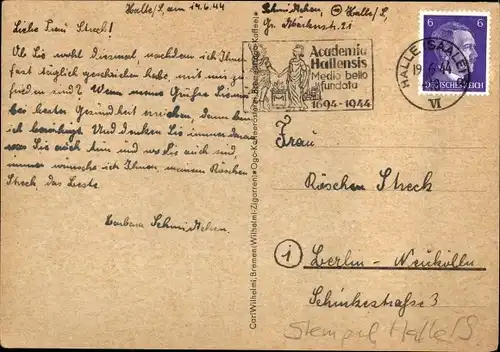 Halle/S, am 19.6.44
Liebe Frau Streck!
Ob Sie wohl diesmal, nachdem ich Ihnen
fast täglich geschrieben habe, mit mir zu-
frieden sind? Wenn meine Grüße Sie
bei bester Gesundheit erreichen, dann bin
ich beruhigt. Und denken Sie immer daran
was Sie auch tun und wo Sie auch sind,
immer wünsche ich Ihnen, meinem Röschen
Streck, das Beste.
Barbara
Carl Wilhelmi, Bremen; Wilhelmi-Zigarren
Halle/S,
21
Academia
Halensis
Medio bello
fundata
1694-1944
HALLE (SAALE)
19.6.44
VI
6 6
DEUTSCHES REICH
Frau
Röschen Streck
1 Berlin-Neukölln
Schinkestraße 3
Stempel Halle/S